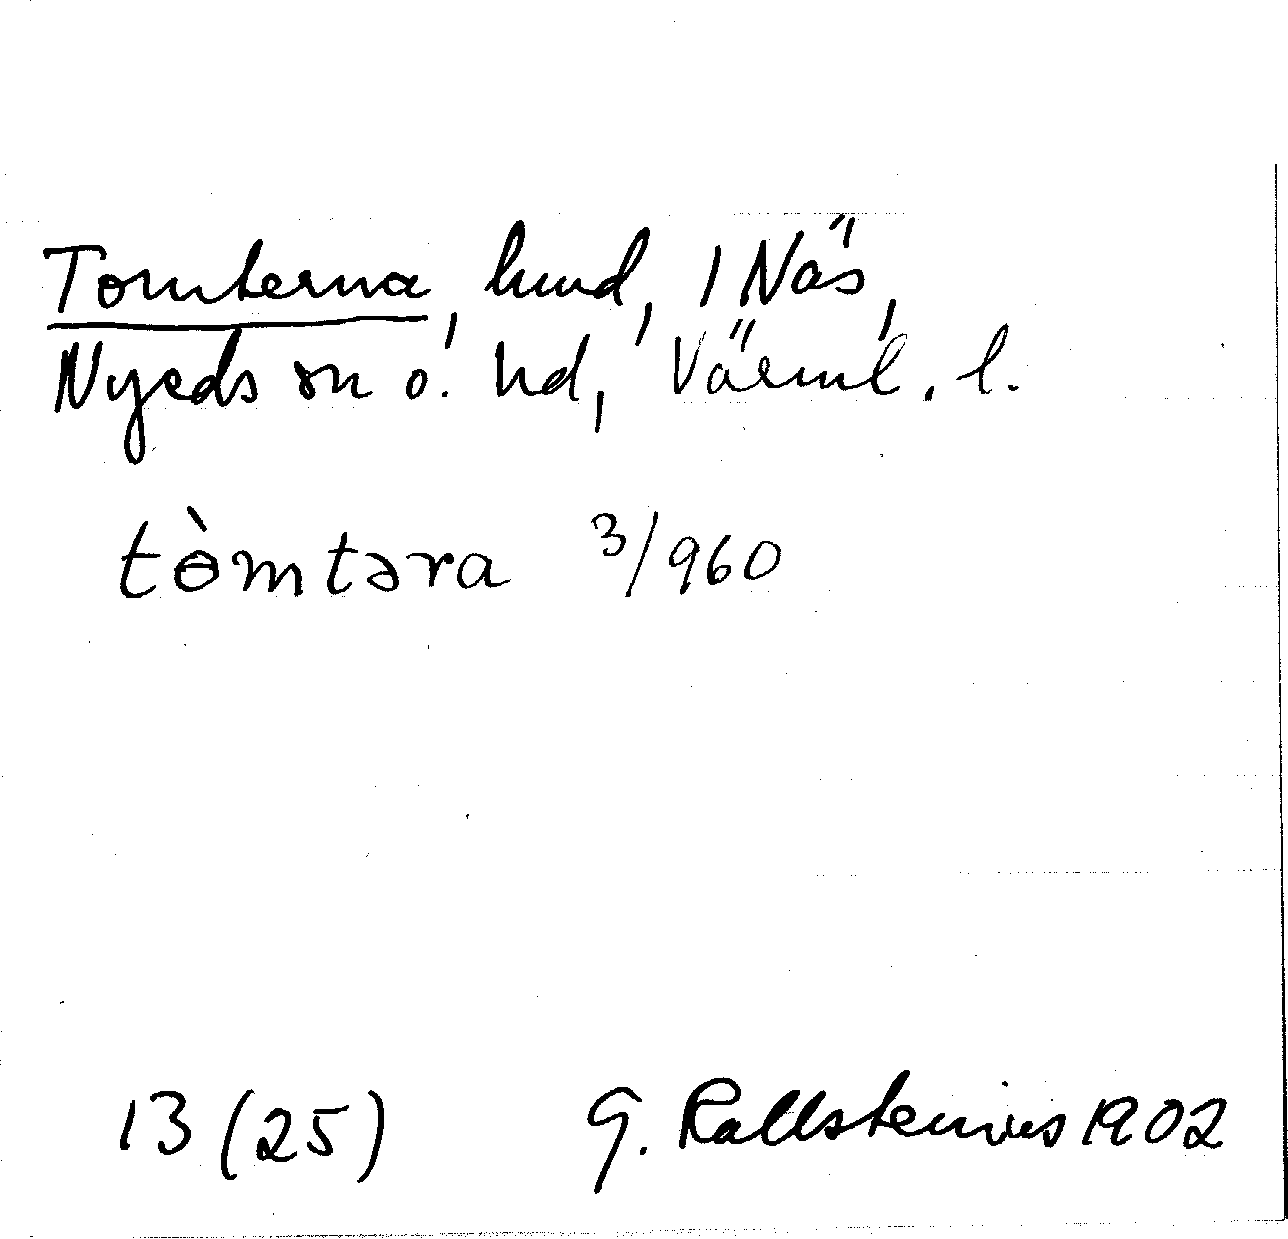 Tomterna, hmd, 1 Näs,
Nyeds sn o. hd, Värml. l.
tɵ̀mtəra 3/960
13 (25) G. Kallstenius 1902